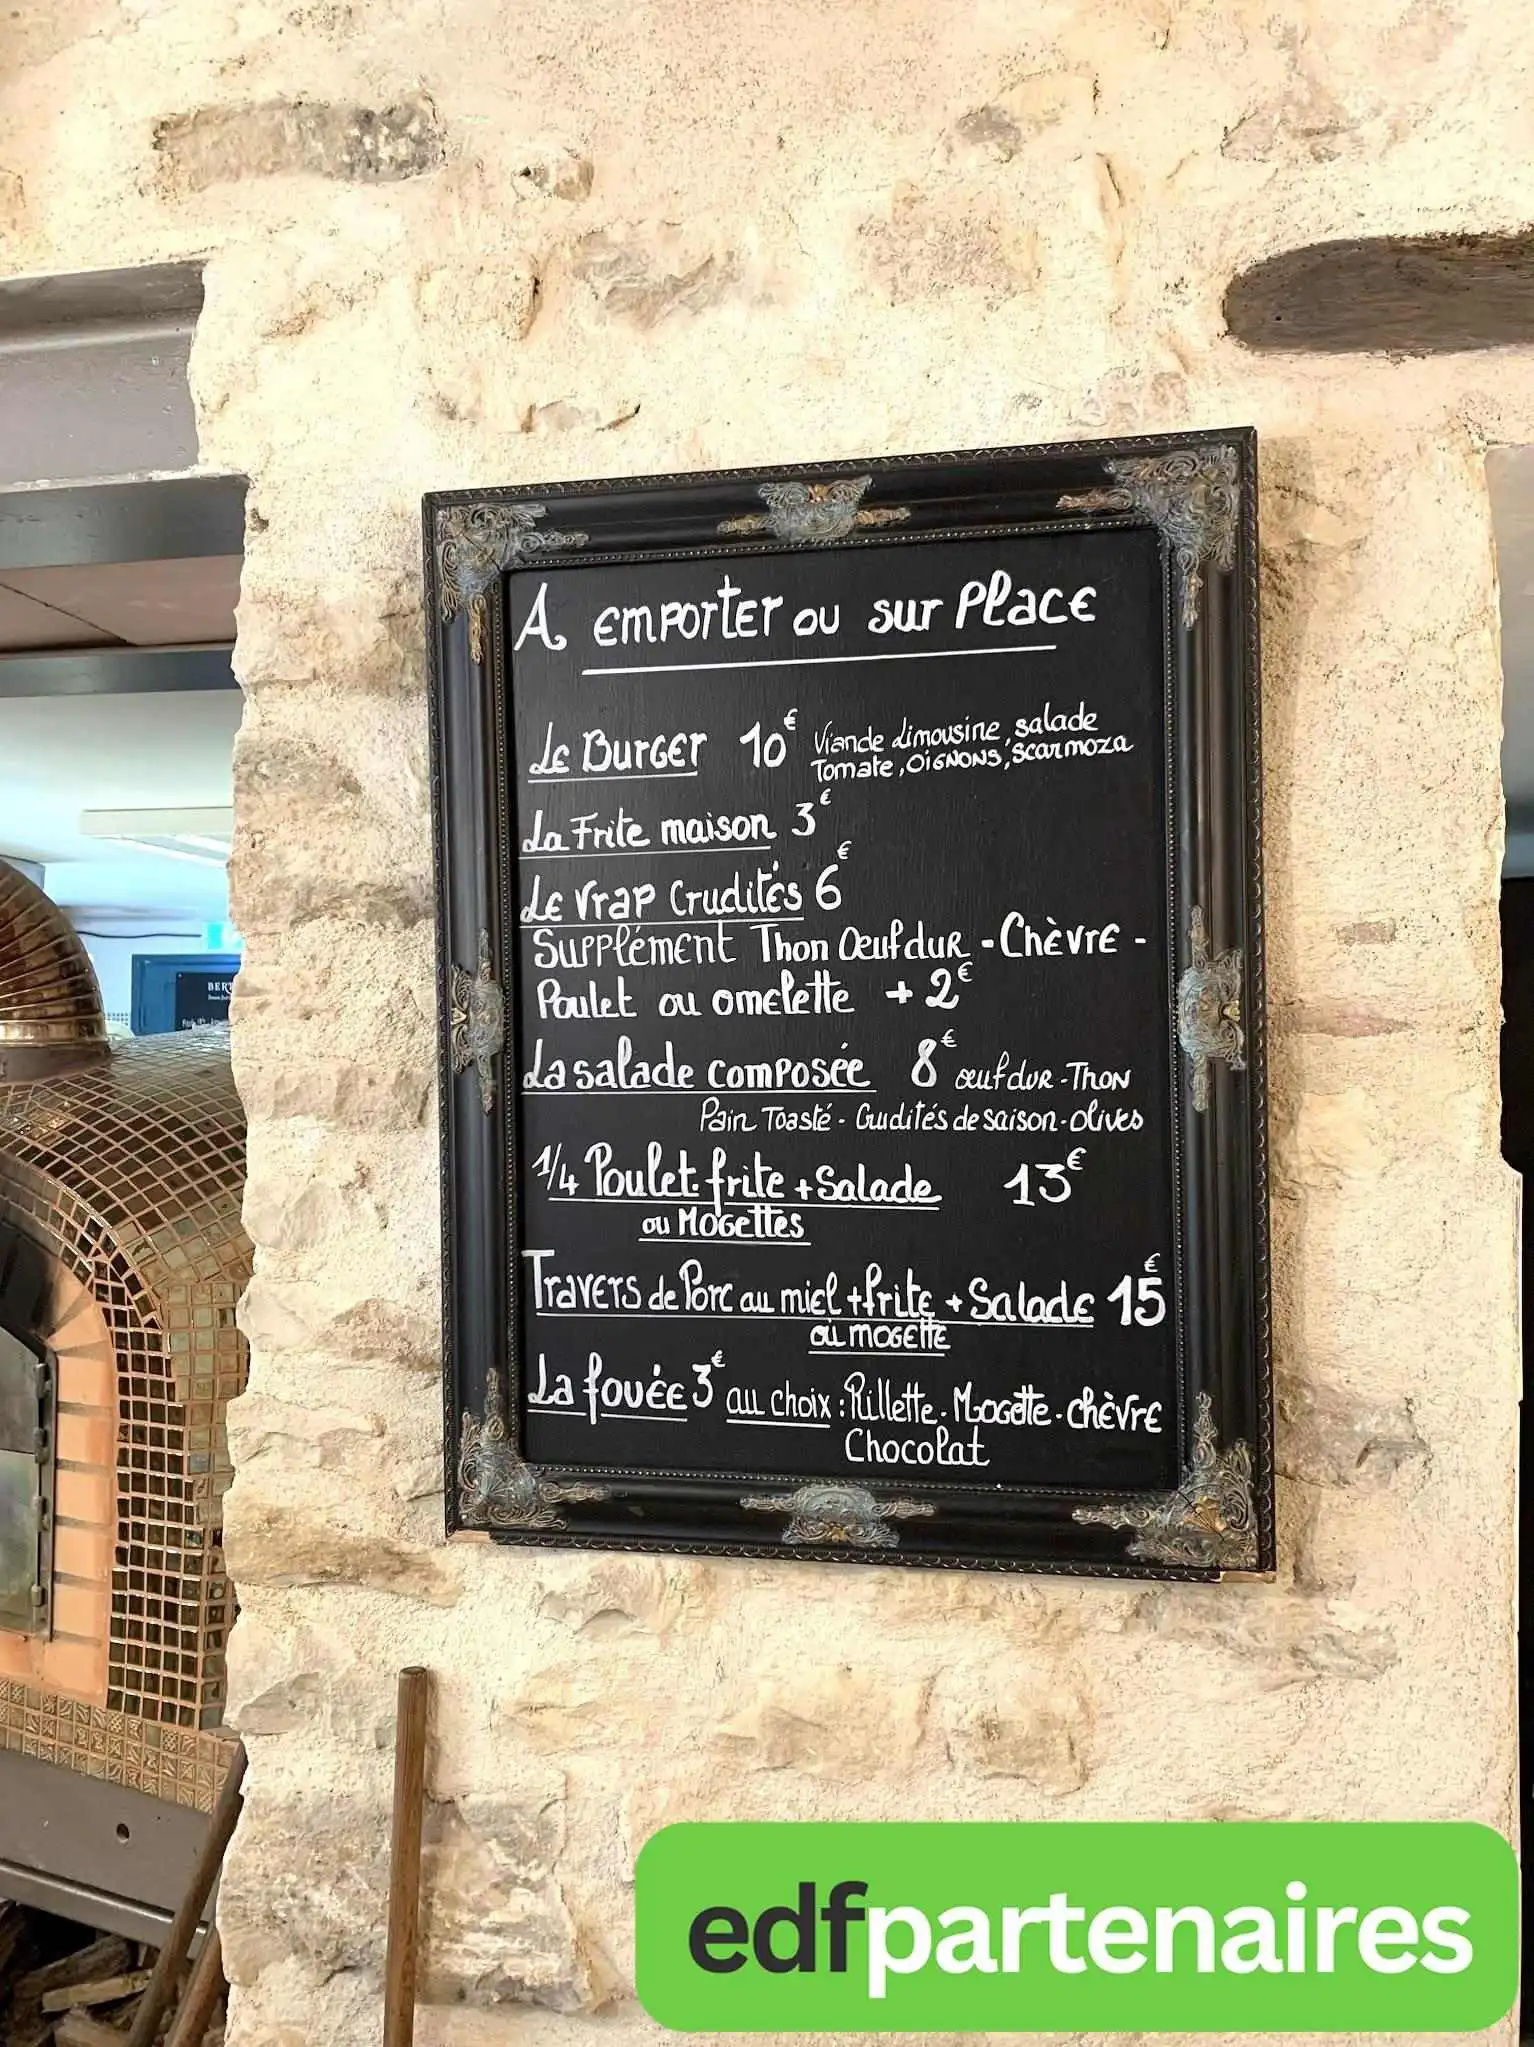 A emporter ou sur Place
Le Burger 10€ Viande Limousine, salade
Tomate, Oignons, Scarmoza
La Frite maison 3€
Le Vrap Crudités 6€
Supplément Thon Oeuf dur - Chèvre -
Poulet ou omelette + 2€
La salade composée 8€ œuf dur - Thon
Pain Toasté - Crudités de saison - olives
1/4 Poulet. frite + Salade 13€
ou Mogettes
Travers de Porc au miel + frite + Salade 15€
ou mogette
La fouée 3€ au choix : Rillette. Mogette. chèvre
Chocolat
BERT
edfpartenaires